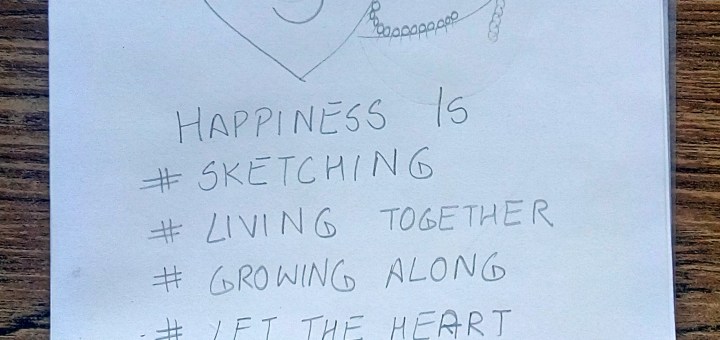 HAPPINESS IS
# SKETCHING
# LIVING TOGETHER
# GROWING ALONG
# THE HEART